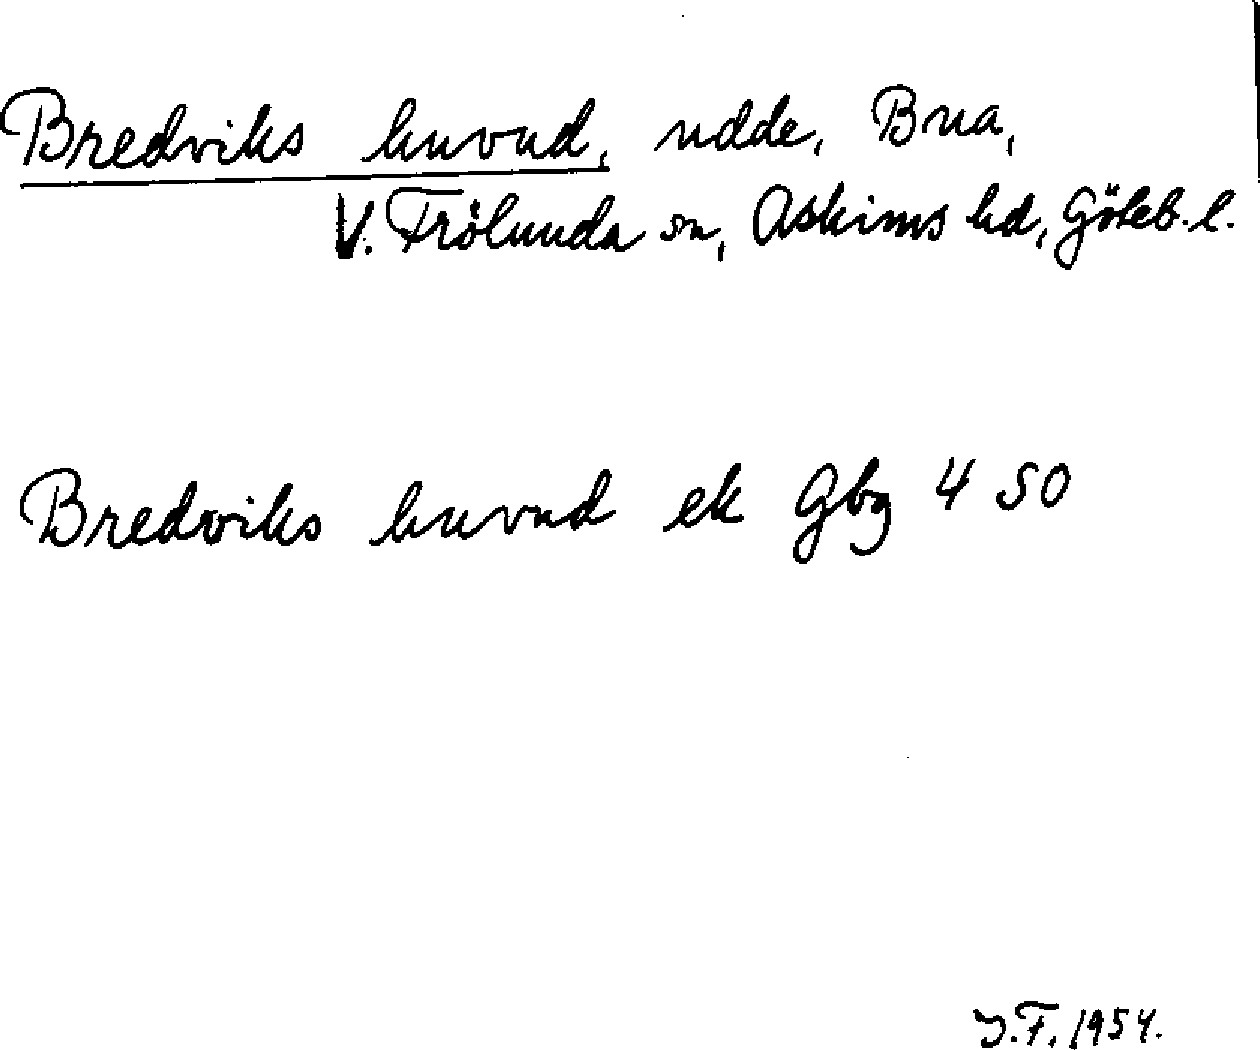 Bredviks huvud, udde, Brua,
V. Frölunda sn, Askims hd, Göteb. l.
Bredviks huvud ek Gbg 4 SO
J.F. 1954.